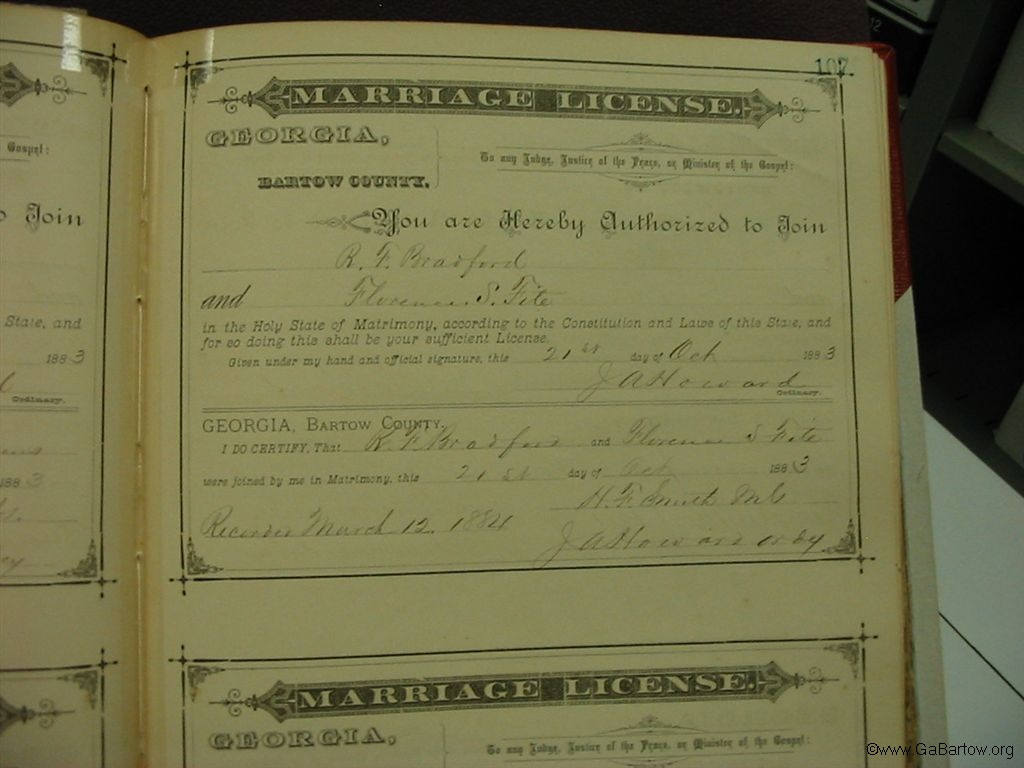 107
MARRIAGE LICENSE.
GEORGIA,
BARTOW COUNTY.
To any Judge, Justice of the Peace, or Minister of the Gospel:
You are Hereby Authorized to Join
R. F. Bradford
and Florence S. Fite
in the Holy State of Matrimony, according to the Constitution and Laws of this State, and
for so doing this shall be your sufficient License.
Given under my hand and official signature, this 21st day of Oct 1883
J A Howard
Ordinary.
GEORGIA, BARTOW COUNTY.
I DO CERTIFY, That R. F. Bradford and Florence S Fite
were joined by me in Matrimony, this 21st day of Oct 1883
H. F. Smith MG
Recorded March 12. 1884
J A Howard ordy
MARRIAGE LICENSE.
GEORGIA,
To any Judge, Justice of the Peace, or Minister of the Gospel:
Gospel:
Join
State, and
1883
Ordinary.
1883
©www.GaBartow.org